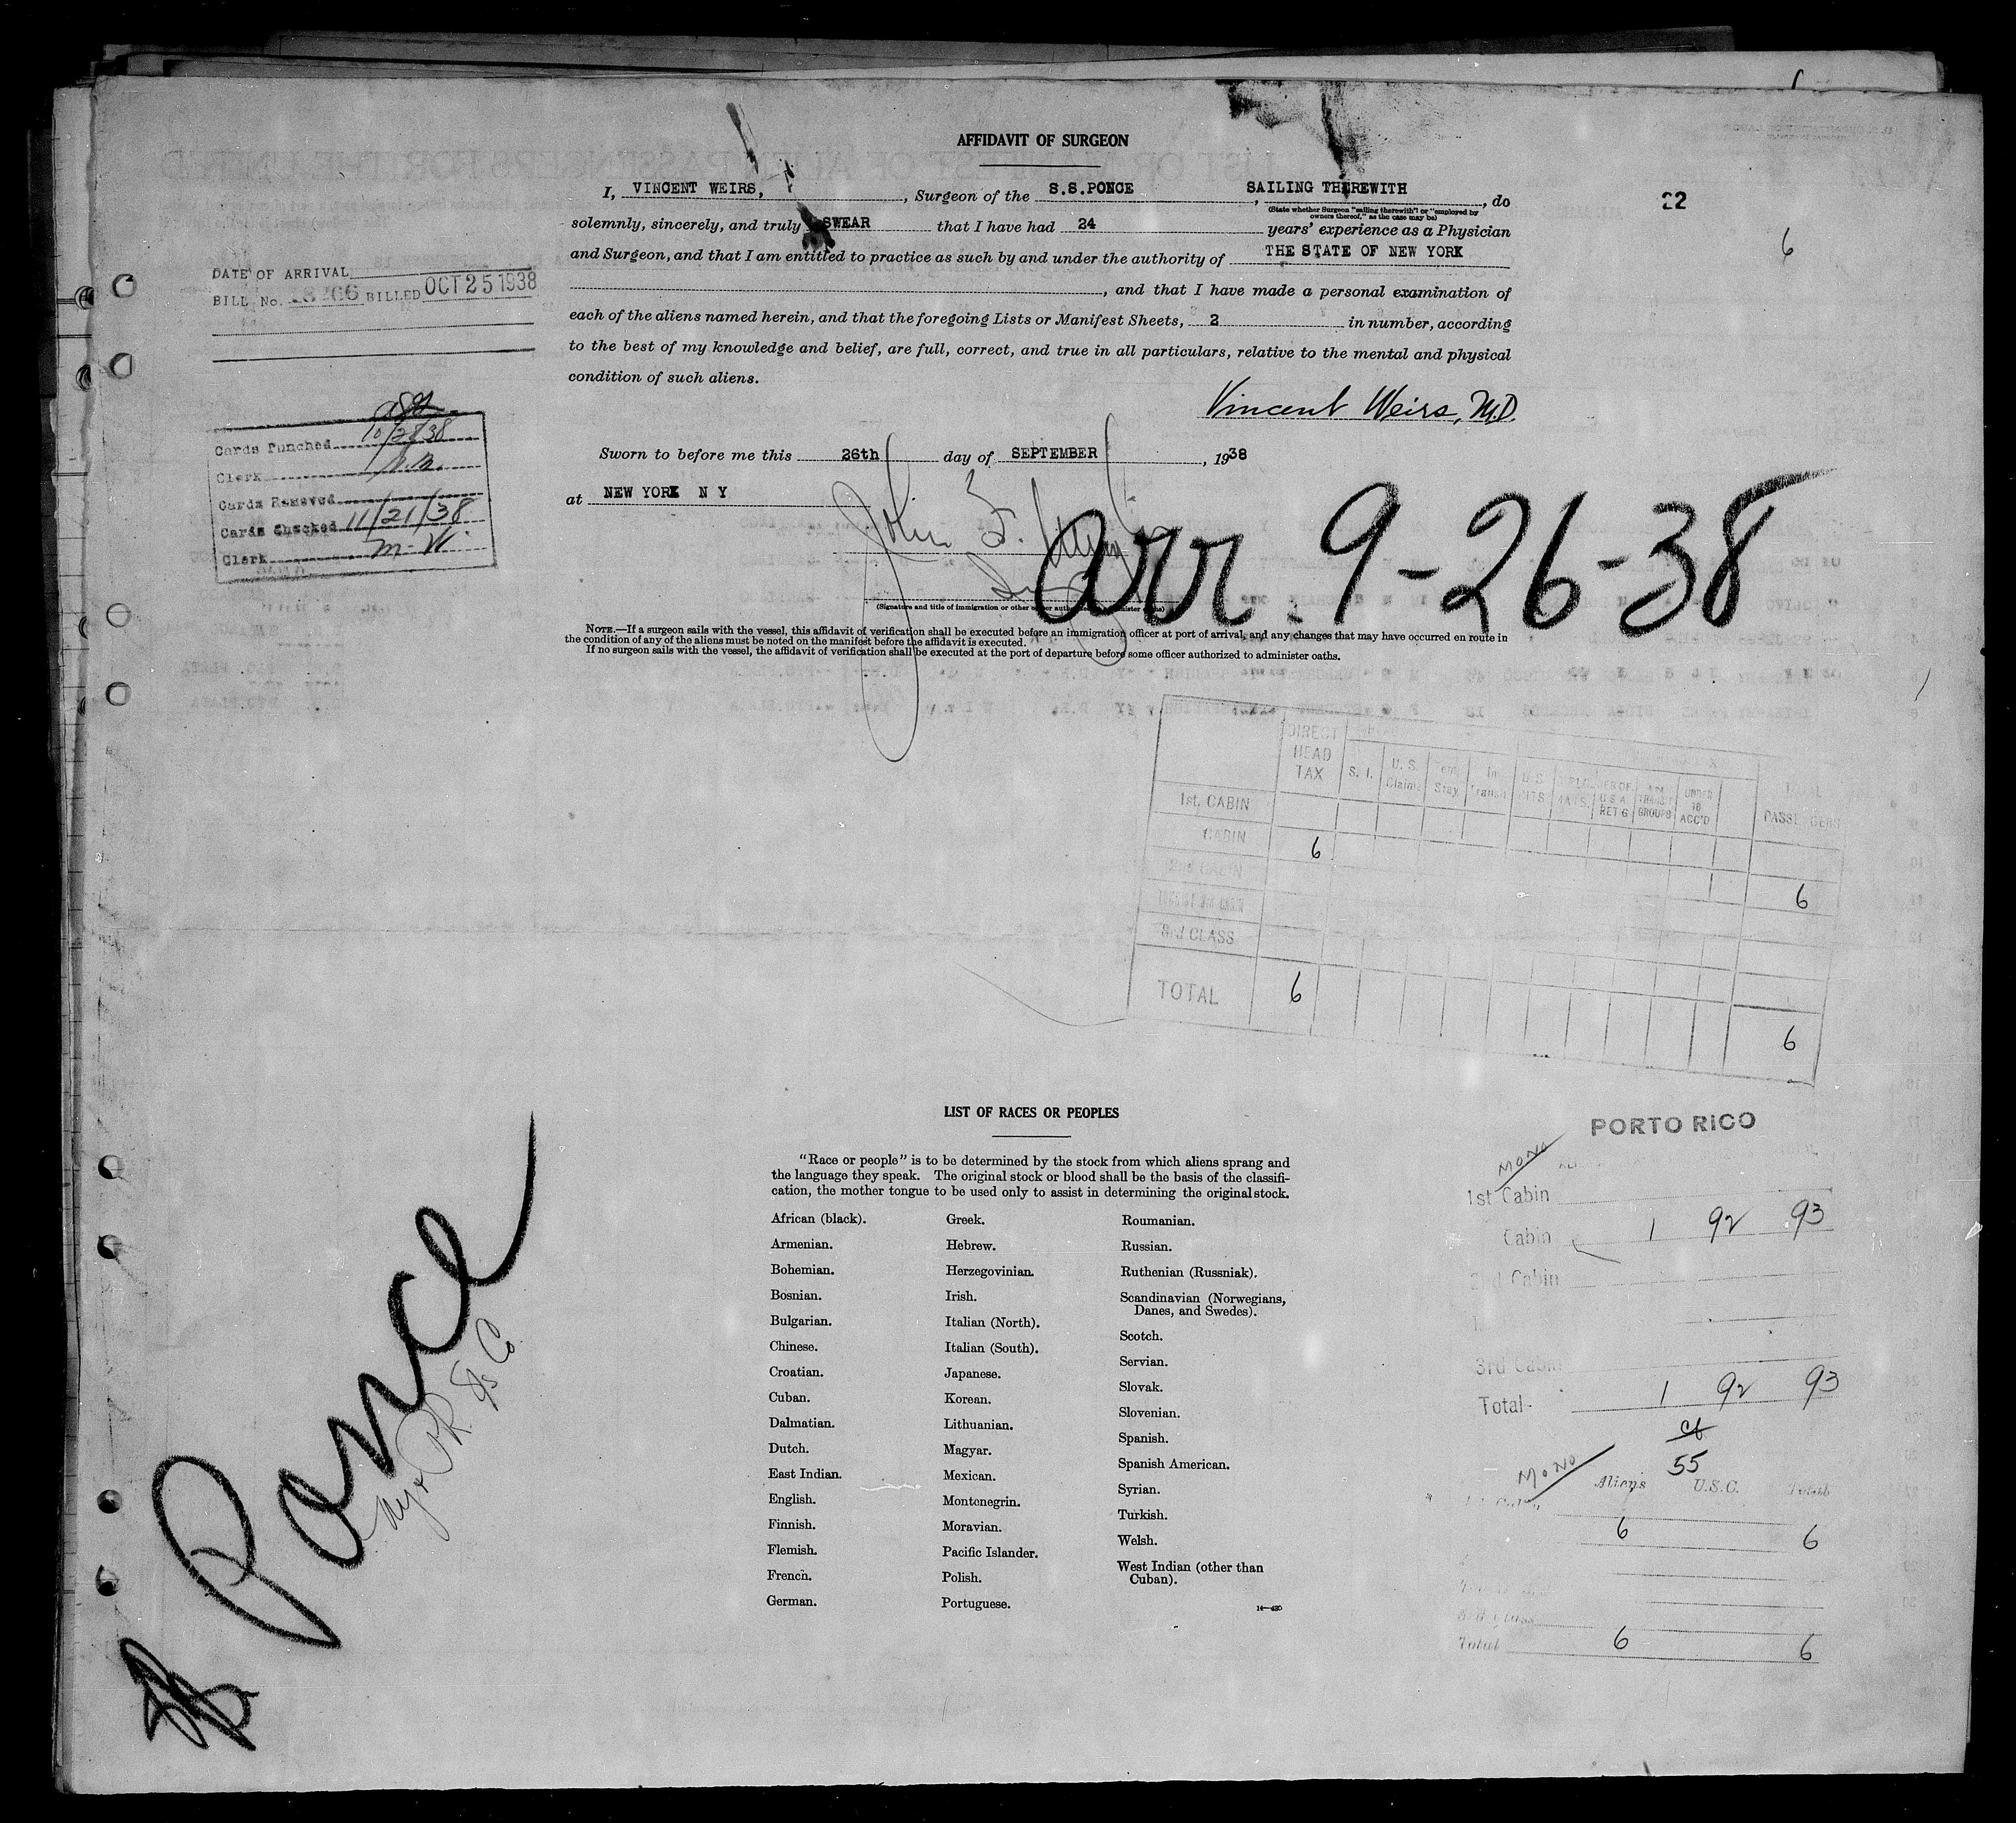 AFFIDAVIT OF SURGEON
I, VINCENT WEIRS, , Surgeon of the S.S.PONCE , SAILING THEREWITH , do
(State whether Surgeon "sailing therewith" or "employed by
owners thereof," as the case may be)
22
6
solemnly, sincerely, and truly SWEAR that I have had 24 years' experience as a Physician
and Surgeon, and that I am entitled to practice as such by and under the authority of THE STATE OF NEW YORK
, and that I have made a personal examination of
each of the aliens named herein, and that the foregoing Lists or Manifest Sheets, 2 in number, according
to the best of my knowledge and belief, are full, correct, and true in all particulars, relative to the mental and physical
condition of such aliens.
Vincent Weirs, M.D.
Sworn to before me this 26th day of SEPTEMBER , 1938
at NEW YORK N Y
John F.
arr. 9-26-38
(Signature and title of immigration or other officer authorized to administer oaths)
NOTE.—If a surgeon sails with the vessel, this affidavit of verification shall be executed before an immigration officer at port of arrival, and any changes that may have occurred en route in
the condition of any of the aliens must be noted on the manifest before the affidavit is executed.
If no surgeon sails with the vessel, the affidavit of verification shall be executed at the port of departure before some officer authorized to administer oaths.
DATE OF ARRIVAL
BILL No. BILLED OCT 25 1938
Cards Punched 10/28/38
Clerk
Cards Removed
Cards Checked 11/21/38
Clerk M-W.
DIRECT HEAD TAX S. I. U. S. Claims Stay In Transit
UNDER 16 ACC'D
PASSENGERS
1st. CABIN
CABIN 6
6
2nd CABIN
3rd CLASS
TOTAL 6
6
LIST OF RACES OR PEOPLES
"Race or people" is to be determined by the stock from which aliens sprang and
the language they speak. The original stock or blood shall be the basis of the classifi-
cation, the mother tongue to be used only to assist in determining the original stock.
African (black).
Armenian.
Bohemian.
Bosnian.
Bulgarian.
Chinese.
Croatian.
Cuban.
Dalmatian.
Dutch.
East Indian.
English.
Finnish.
Flemish.
French.
German.
Greek.
Hebrew.
Herzegovinian.
Irish.
Italian (North).
Italian (South).
Japanese.
Korean.
Lithuanian.
Magyar.
Mexican.
Montenegrin.
Moravian.
Pacific Islander.
Polish.
Portuguese.
Roumanian.
Russian.
Ruthenian (Russniak).
Scandinavian (Norwegians,
Danes, and Swedes).
Scotch.
Servian.
Slovak.
Slovenian.
Spanish.
Spanish American.
Syrian.
Turkish.
Welsh.
West Indian (other than
Cuban).
14—430
PORTO RICO
MONO
1st Cabin
Cabin 1 92 93
2nd Cabin
3rd Cabin
Total 1 92 93
55
MONO
Aliens U.S.C. Totals
6 6
Total 6 6
Ponce